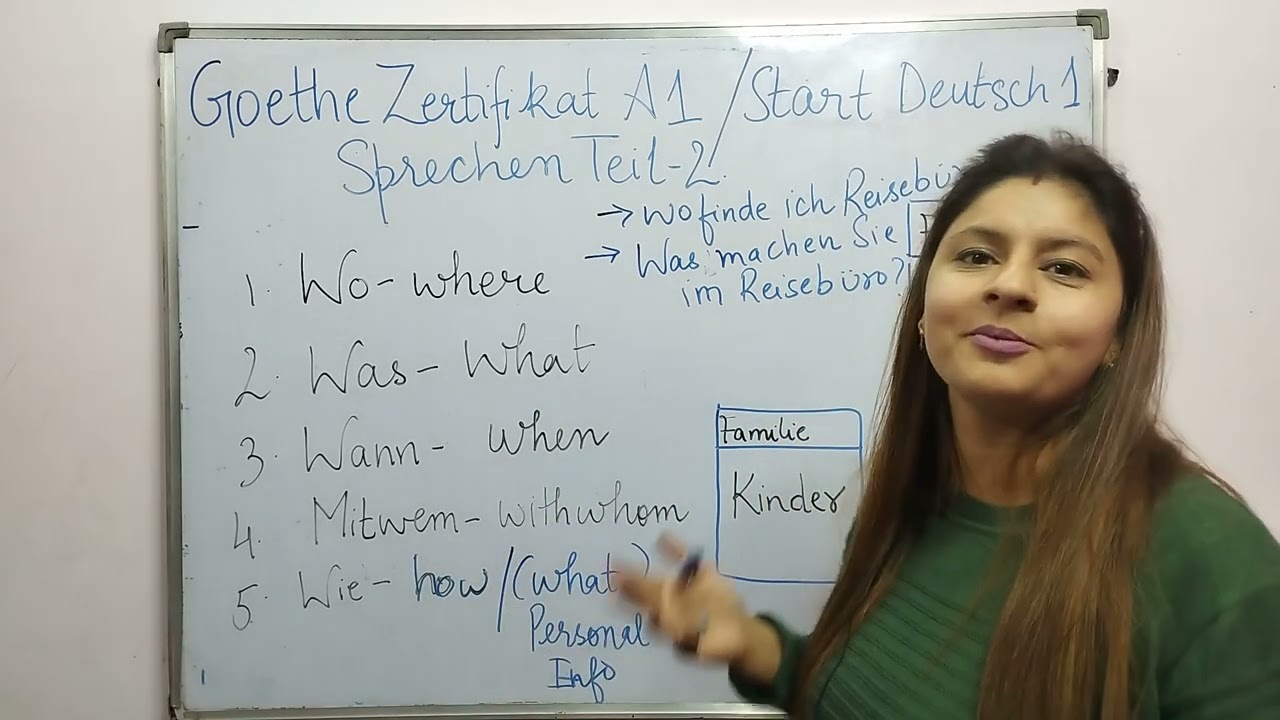 Goethe Zertifikat A1 / Start Deutsch 1
Sprechen Teil-2
→ Wo finde ich
→ Was machen Sie
im Reisebüro?
1. Wo - where
2. Was - What
3. Wann - when
4. Mitwem - withwhom
5. Wie - how / (what)
Personal
Info
Familie
Kinder